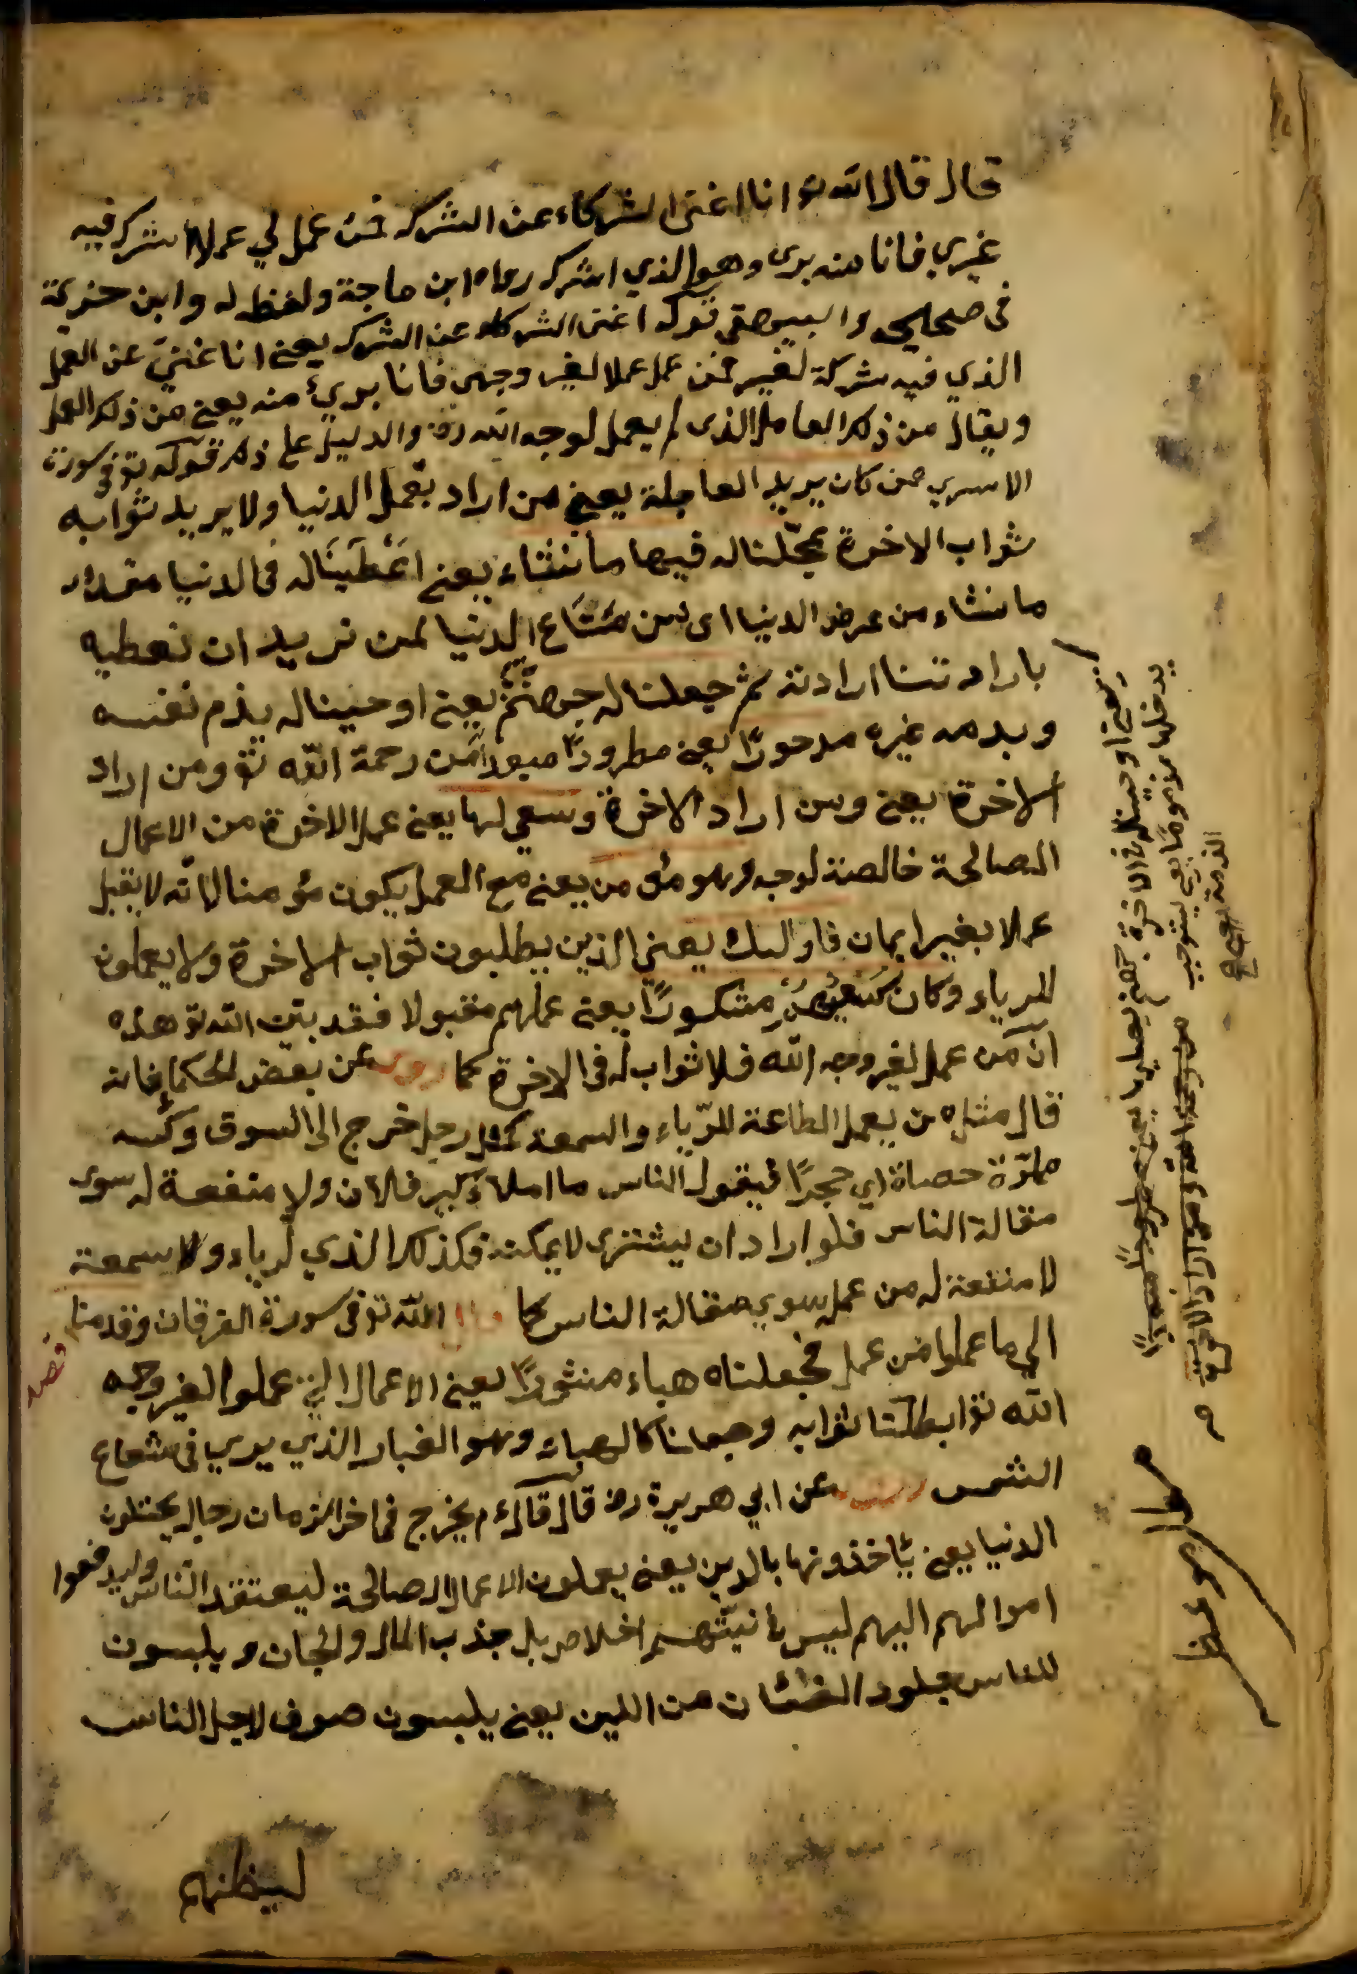 قال قال الله تو انا اغنى الشركاء عن الشرك فمن عمل لي عملا اشرك فيه
غيري فانا منه برى وهو الذي اشرك رواه ابن ماجة ولفظ له وابن خزيمة
في صحاحي والبيهقي قوله اغنى الشركاء عن الشرك يعني انا غني عن العمل
الذي فيه شركة لغير فمن عمل عملا لغير وجهى فانا بريء منه يعني من ذلك العمل
ويقال من ذلك العامل الذى لم يعمل لوجه الله والدليل على ذلك قوله تو في سورة
الاسرى من كان يريد العاجلة يعني من اراد بعمل الدنيا ولا يريد ثوابه
ثواب الاخرة عجّلنا له فيها ما نشاء يعني اعْطَينَا له في الدنيا مقدار
ما نشاء من عرض الدنيا اى من مَتَاع الدنيا لمن نريد ان نعطيه
بارادتنا ارادته ثم جعلنا له جهنّم يعني اوجبنا له يذم نفسه
ويذمه غيره مدحورًا يعني مطرودًا مبعدا من رحمة الله تو ومن اراد
الاخرة يعني ومن اراد الاخرة وسعي لها يعني عمل الاخرة من الاعمال
الصالحة خالصة لوجه وهو مؤمن يعني مع العمل يكون مؤمنا لانه لا يقبل
عملا بغير ايمان فاولئك يعني الذين يطلبون ثواب الاخرة ولا يعملون
للرياء وكان سَعْيُهُمْ مشكورًا يعني عملهم مقبولا فقد بيّن الله تو هذه
انّ من عمل لغير وجه الله فلا ثواب له في الاخرة كما روى عن بعض الحكماء فانه
قال مثل من يعمل الطاعة للرّياء والسمعة كمثل رجل خرج الى السوق وكيسه
مملوّة حصاة اي حجرًا فيقول الناس ما املاء كيس فلان ولا منفعة له سوى
مقالة الناس فلو اراد ان يشترى لا يمكنه فكذلك الذي لرياء ولا سمعة
لا منفعة له من عمل سوي مقالة الناس كما قال الله تو في سورة الفرقان وقدمنا
الي ما عملوا من عمل فجعلناه هباء منثورًا يعني الاعمال التي عملوا لغير وجه
الله تو ابطلنا ثوابه وجعلنا كالهباء وهو الغبار الذي يري في شعاع
الشمس عن ابي هريرة رض قال قال ءم يخرج في اخر الزمان رجال يختلون
الدنيا يعني ياخذونها بالدين يعني يعملون الاعمال الصالحة ليعتقد الناس وليدفعوا
اموالهم اليهم ليس نيتهم اخلاص بل جذب المال والجان ويلبسون
للناس جلود الضئان من اللين يعني يلبسون صوف لاجل الناس
ليظنهم
يعني اوجبنا له في الاخرة جهنم يصليها يعني
يدخلها مذموما يعني يستوجب
المذمة يعني
من رحمة الله ومن اراد الاخرة
قصد